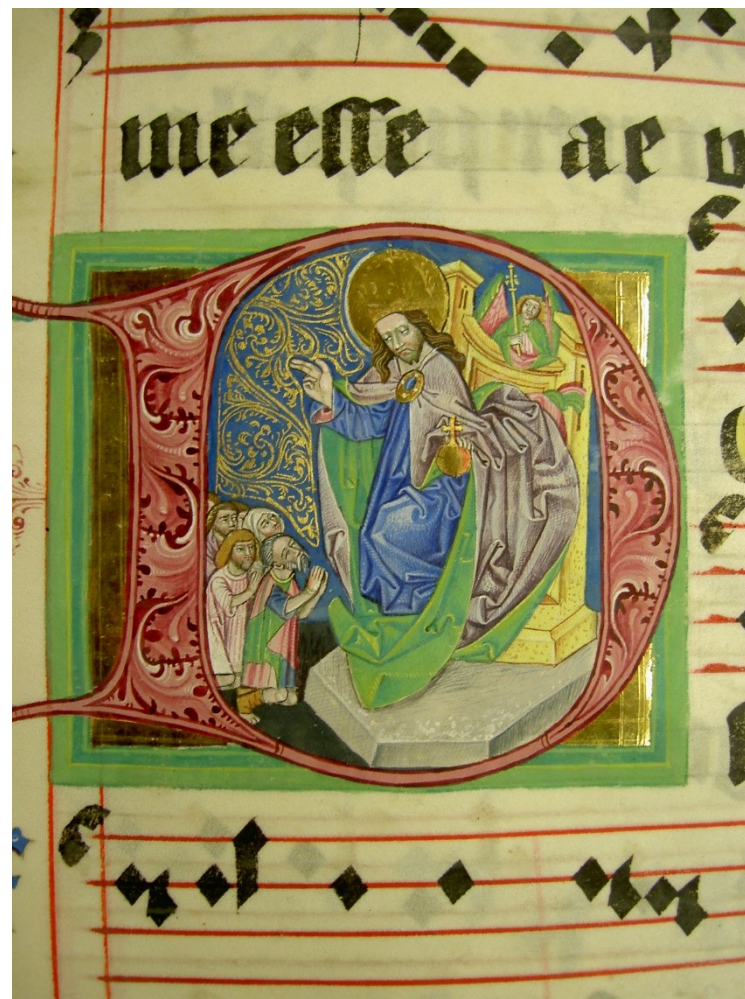 me esse ae v
D